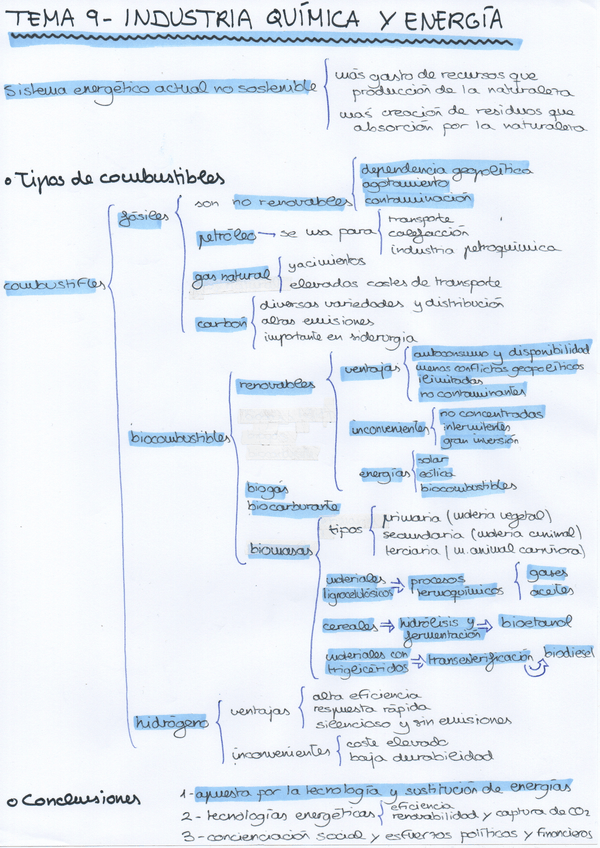 TEMA 9 - INDUSTRIA QUÍMICA Y ENERGÍA
Sistema energético actual no sostenible
más gasto de recursos que
producción de la naturaleza
más creación de residuos que
absorción por la naturaleza
Tipos de combustibles
combustifles
fósiles
son no renovables
dependencia geopolítica
agotamiento
contaminación
petróleo → se usa para
transporte
calefacción
industria petroquímica
gas natural
yacimientos
elevados costes de transporte
carbon
diversas variedades y distribución
altas emisiones
importante en siderurgia
biocombustibles
renovables
ventajas
autoconsumo y disponibilidad
menos conflictos geopolíticos
ilimitadas
no contaminantes
inconvenientes
no concentradas
intermitentes
gran inversión
energías
solar
eólica
biocombustibles
biogás
biocarburante
biomasas
tipos
primaria (materia vegetal)
secundaria (materia animal)
terciaria (m. animal carnívora)
materiales
⇒ procesos
termoquímicos
gases
aceites
cereales ⇒ hidrólisis y ⇒ bioetanol
fermentación
materiales con
triglicéridos
⇒ transesterificación
biodiesel
hidrógeno
ventajas
alta eficiencia
respuesta rápida
silencioso y sin emisiones
inconvenientes
coste elevado
baja durabilidad
Conclusiones
1 - apuesta por la tecnología y sustitución de energías
2 - tecnologías energéticas
eficiencia
renovabilidad y captura de CO2
3 - concienciación social y esfuerzos políticos y financieros